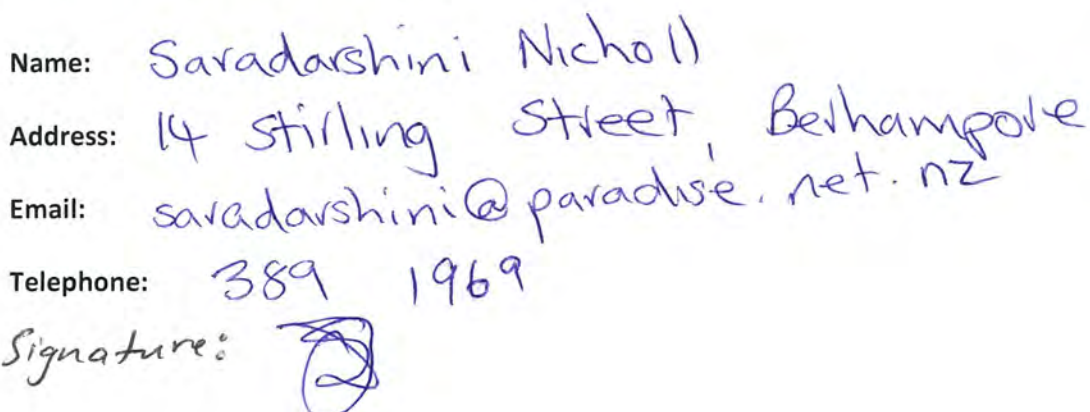 Name: Saradarshini Nicholl
Address: 14 Stirling Street, Berhampore
Email: saradarshini@paradise.net.nz
Telephone: 389 1969
Signature: